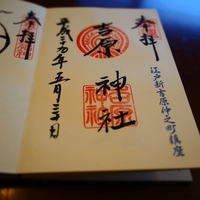 奉拝
江戸新吉原仲之町鎮座
吉原神社
平成二十九年五月三十日
奉拝